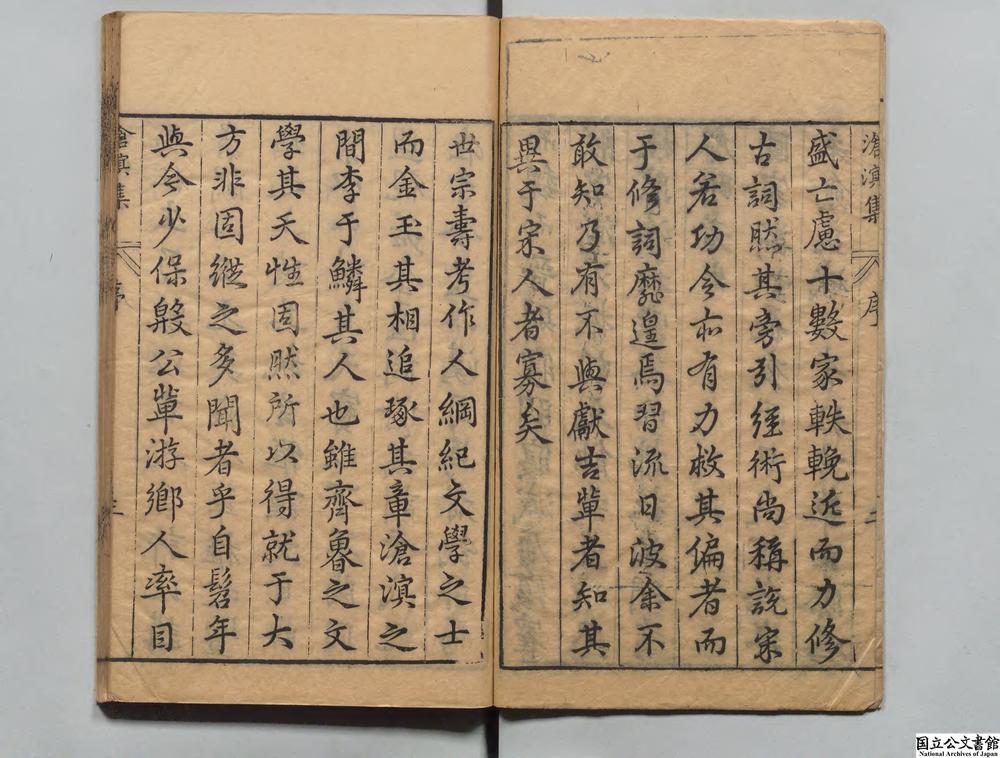 滄溟集 序 二
盛亡慮十數家軼輓近而力修
古詞肰其旁引経術尚稱說宋
人若功令亦有力救其偏者而
于修詞靡遑焉習流日波余不
敢知乃有不與獻吉軰者知其
異于宋人者寡矣
世宗壽考作人綱紀文學之士
而金玉其相追琢其章滄溟之
間李于鱗其人也雖齊魯之文
學其天性固然所以得就于大
方非固縱之多聞者乎自髫年
與今少保殷公軰游鄉人率目
滄溟集 序 三
国立公文書館
National Archives of Japan